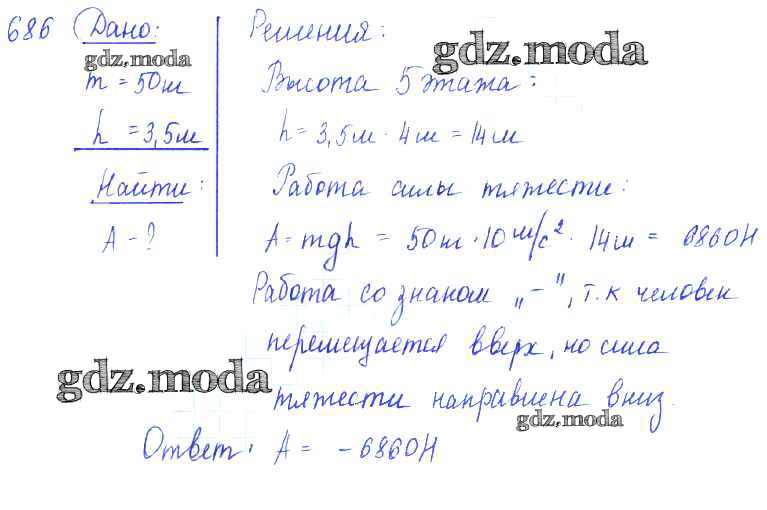 686 Дано:
gdz.moda
m = 50м
h = 3,5м
Найти:
A - ?
Решения:
gdz.moda
Высота 5 этажа:
h = 3,5м · 4м = 14м
Работа силы тяжести:
A = mgh = 50м · 10 м/с² · 14м = 6860Н
Работа со знаком „-", т.к человек
перемещается вверх, но сила
gdz.moda
тяжести направлена вниз.
gdz.moda
Ответ: A = -6860Н